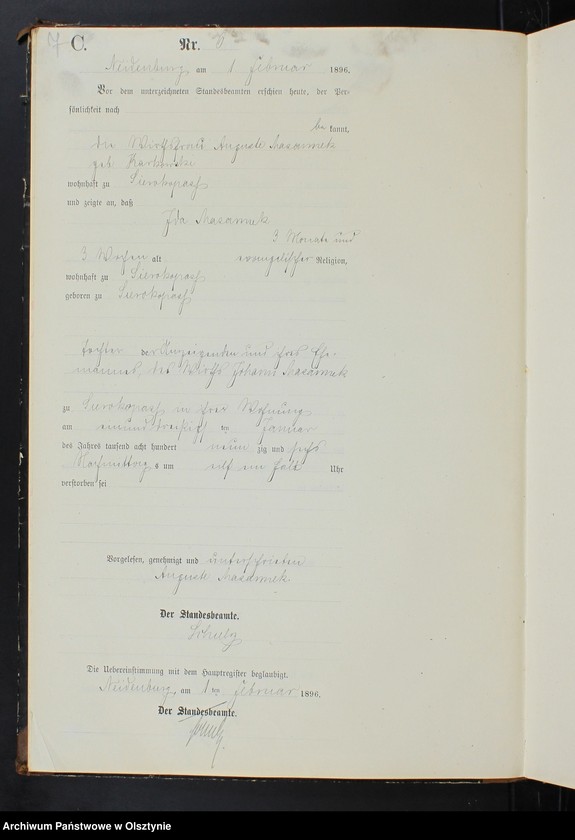 7 C. Nr. 8
Neidenburg, am 1 Februar 1896.
Vor dem unterzeichneten Standesbeamten erschien heute, der Per-
sönlichkeit nach
be kannt,
die Wirthsfrau Auguste Masannek
geb.
wohnhaft zu Sierokopaß
und zeigte an, daß
Ida Masannek
3 Monate und
3 Wochen alt evangelischer Religion,
wohnhaft zu Sierokopaß
geboren zu Sierokopaß
Tochter der Anzeigenden und ihres Ehe-
mannes, des Wirths Johann Masannek
zu Sierokopaß in ihrer Wohnung
am einunddreißigsten Januar
des Jahres tausend acht hundert neun zig und sechs
Nachmittags um elf ein halb Uhr
verstorben sei
Vorgelesen, genehmigt und unterschrieben
Auguste Masannek
Der Standesbeamte.
Schulz
Die Uebereinstimmung mit dem Hauptregister beglaubigt.
Neidenburg, am 1 ten Februar 1896.
Der Standesbeamte.
Schulz
Archiwum Państwowe w Olsztynie